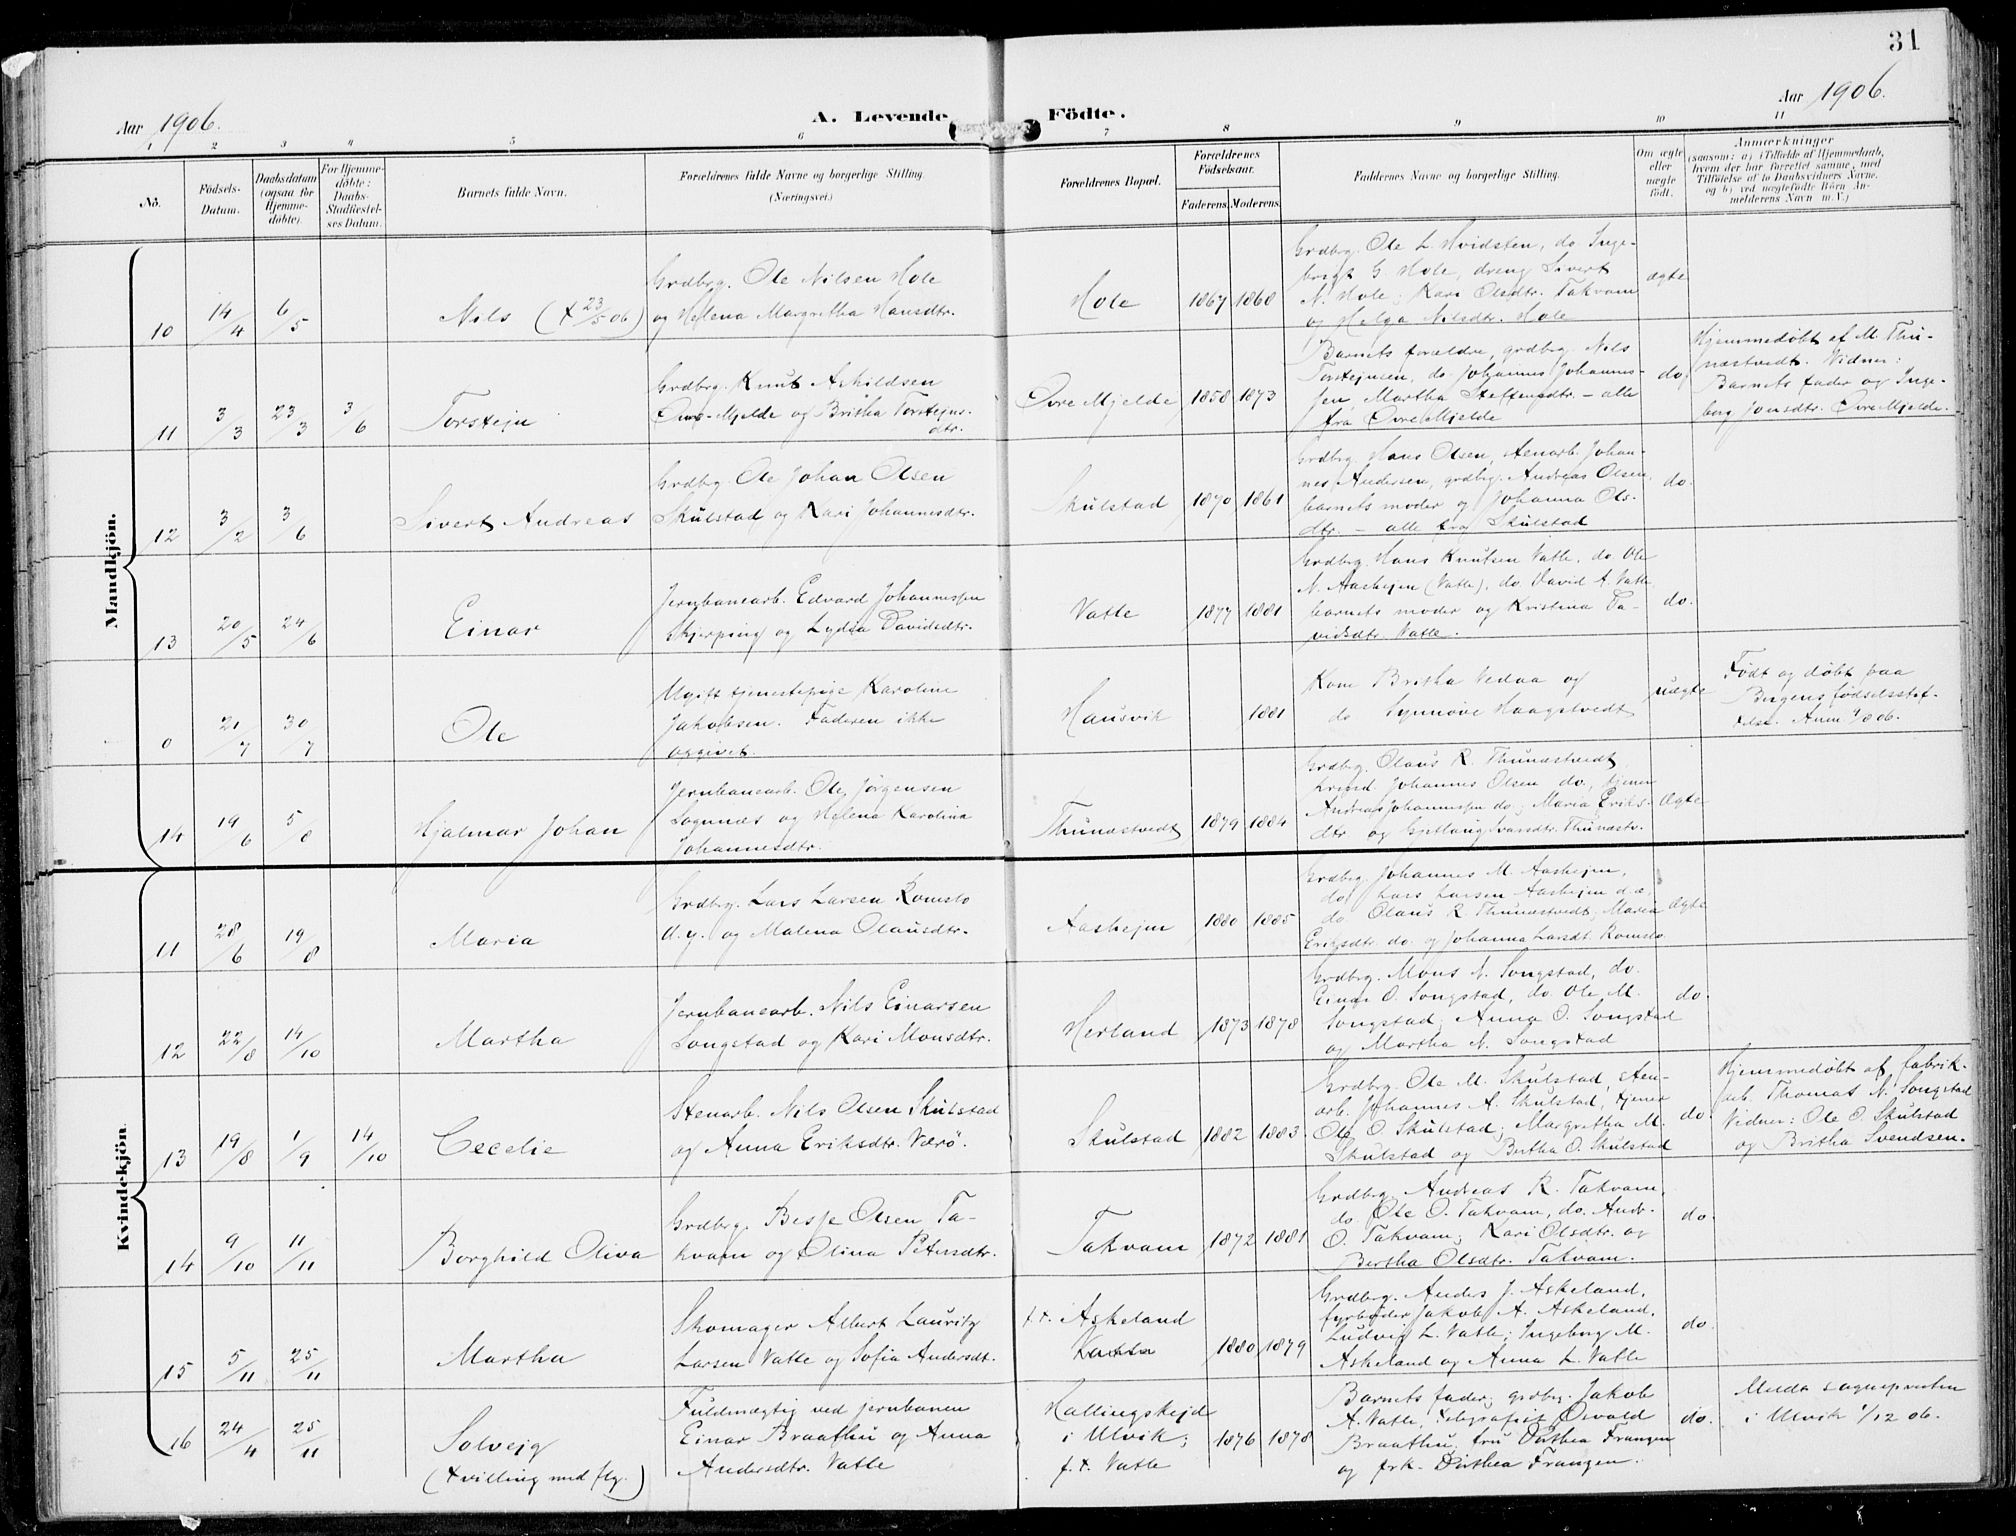 31
Aar 1906.
A. Levende Födte.
Aar 1906.
1 2 3 4 5 6 7 8 9 10 11
No.
Födsels-Datum.
Daabsdatum (ogsaa for Hjemme-döbte).
For Hjemme-döbte: Daabs-Stadfæstel-ses Datum.
Barnets fulde Navn.
Forældrenes fulde Navne og borgerlige Stilling.
(Næringsvei.)
Forældrenes Bopæl.
Forældrenes Födselsaar.
Faderens. Moderens.
Faddernes Navne og borgerlige Stilling.
Om ægte eller uægte födt.
Anmærkninger
(saasom: a) i Tilfælde af Hjemmedaab,
hvem der har forrettet samme, med
Tilföielse af to Daabsvidners Navne,
og b) ved uægtefödte Börn An-
melderens Navn m. V.)
Mandkjön.
10 14/4 6/5 Nils († 23/5 06)
Grdbrg. Ole Nilsen Hole
og Helena Margretha Hansdtr.
Hole 1867 1868
Grdbrg. Ole L. Hvidsten, do. Inge-
brigt G. Hole, dreng Sivert
N. Hole; Kari Olsdtr. Takvam
og Helga Nilsdtr. Hole
ægte
11 3/3 23/3 3/6 Torstejn
Grdbrg. Knut Askildsen
Øvre-Mjelde og Britha Torstejns-
dtr.
Øvre Mjelde 1858 1873
Barnets forældre, grdbrg. Nils
Torstejnsen, do. Johannes Johannes-
sen, Martha Steffensdtr. – alle
fra Øvre Mjelde
do.
Hjemmedøbt af M. Thu-
næstvedt. Vidner:
Barnets fader og Inge-
borg Jonsdtr. Øvre Mjelde.
12 3/2 3/6 Sivert Andreas
Grdbrg. Ole Johan Olsen
Skulstad og Kari Johannesdtr.
Skulstad 1870 1861
Grdbrg. Hans Olsen, stenarb. Johan-
nes Andersen, grdbrg. Andreas Olsen,
barnets moder og Johanna Ols-
dtr. – alle fra Skulstad
do.
13 20/5 24/6 Einar
Jernbanearb. Edvard Johannessen
Skjerping og Lydia Davidsdtr.
Vatle 1877 1881
Grdbrg. Hans Knutsen Vatle, do. Ole
N. Aashejm (Vatle), do. David A. Vatle
barnets moder og Kristina Da-
vidsdtr. Vatle.
do.
0 21/7 30/7 Ole
Ugift tjenestepige Karoline
Jakobsen. Faderen ikke
opgivet.
Hausvik 1881
Kone Britha Vedaa og
do Synnøve Haagstvedt
uægte
Født og døbt paa
Bergens fødselsstif-
telse. Anm 4/8 06.
14 19/6 5/8 Hjalmar Johan
Jernbanearb. Ole Jørgensen
Sognnæs og Helena Karolina
Johannesdtr.
Thunæstvedt 1879 1884
Grdbrg. Olaus R. Thunæstvedt,
Johannes Olsen do., tjener
Andreas Johannessen do; Maria Eriks-
dtr og Ivarsdtr. Thunæstv.
Ægte
Kvindekjön.
11 28/6 19/8 Maria
Grdbrg. Lars Larsen Romslo
d.y. og Malena Olausdtr.
Aashejm 1880 1885
Grdbrg. Johannes M. Aashejm,
do. Lars Larsen Aashejm d.æ,
do. Olaus R Thunæstvedt, Maria
Eriksdtr. do. og Johanna Larsdt. Romslo
Ægte
12 22/8 14/10 Martha
Jernbanearb. Nils Einarsen
Songstad og Kari Monsdtr.
Herland 1873 1878
Grdbrg. Mons N. Songstad, do.
Einar O. Songstad, do. Ole M.
Songstad; Anna O. Songstad
og Martha N. Songstad
do.
13 19/8 1/9 14/10 Cecelie
Stenarb. Nils Olsen Skulstad
og Anna Eriksdtr. Værö.
Skulstad 1882 1883.
Grdbrg. Ole M. Skulstad, sten-
arb. Johannes A. Skulstad, tjener
Ole O Skulstad; Margretha M.
Skulstad og Bertha O. Skulstad
do.
Hjemmedøbt af fabrik-
arb. Thomas N. Songstad
Vidner: Ole O. Skulstad
og Britha Svendsen.
14 9/10 11/11 Borghild Oliva
Grdbrg. Besse Olsen Ta-
kvam og Olina Petersdtr.
Takvam 1872 1881
Grdbrg. Andreas R. Takvam,
do. Ole O. Takvam, do. Andr.
O. Takvam; Kari Olsdtr. og
Bertha Olsdtr. Takvam.
do.
15 5/11 25/11 Martha
Skomager Albert Lauritz
Larsen Vatle og Sofia Andersdt.
f.t. Askeland
1880 1879
Grdbrg. Anders J. Askeland,
fyrbøder Jakob A. Askeland,
Ludvig L. Vatle; Ingeborg M.
Askeland og Anna L. Vatle
do.
16 24/4 25/11 Solvejg
(tvilling med flg.)
Fuldmægtig ved jernbanen
Einar Braathu og Anna
Andersdtr. Vatle
Hallingskejd
i Ulvik;
f.t. Vatle
1876 1878
Barnets fader, grdbrg. Jakob
A. Vatle, telegrafist Osvald
Braathu, fru Dorthea Frangen
og frk. Dorthea Frangen.
do.
Meldt sognepresten
i Ulvik 1/12 06.